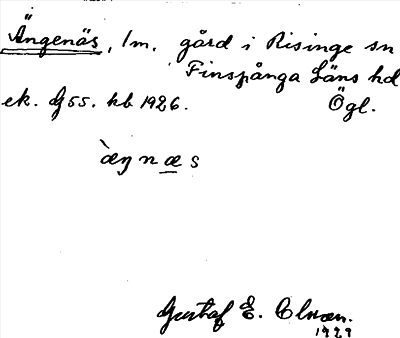 Ängenäs, 1m. gård i Risinge sn
Finspånga Läns hd
ek. G55. kb 1926. Ögl.
`æŋnæs
Gustaf E.
1929